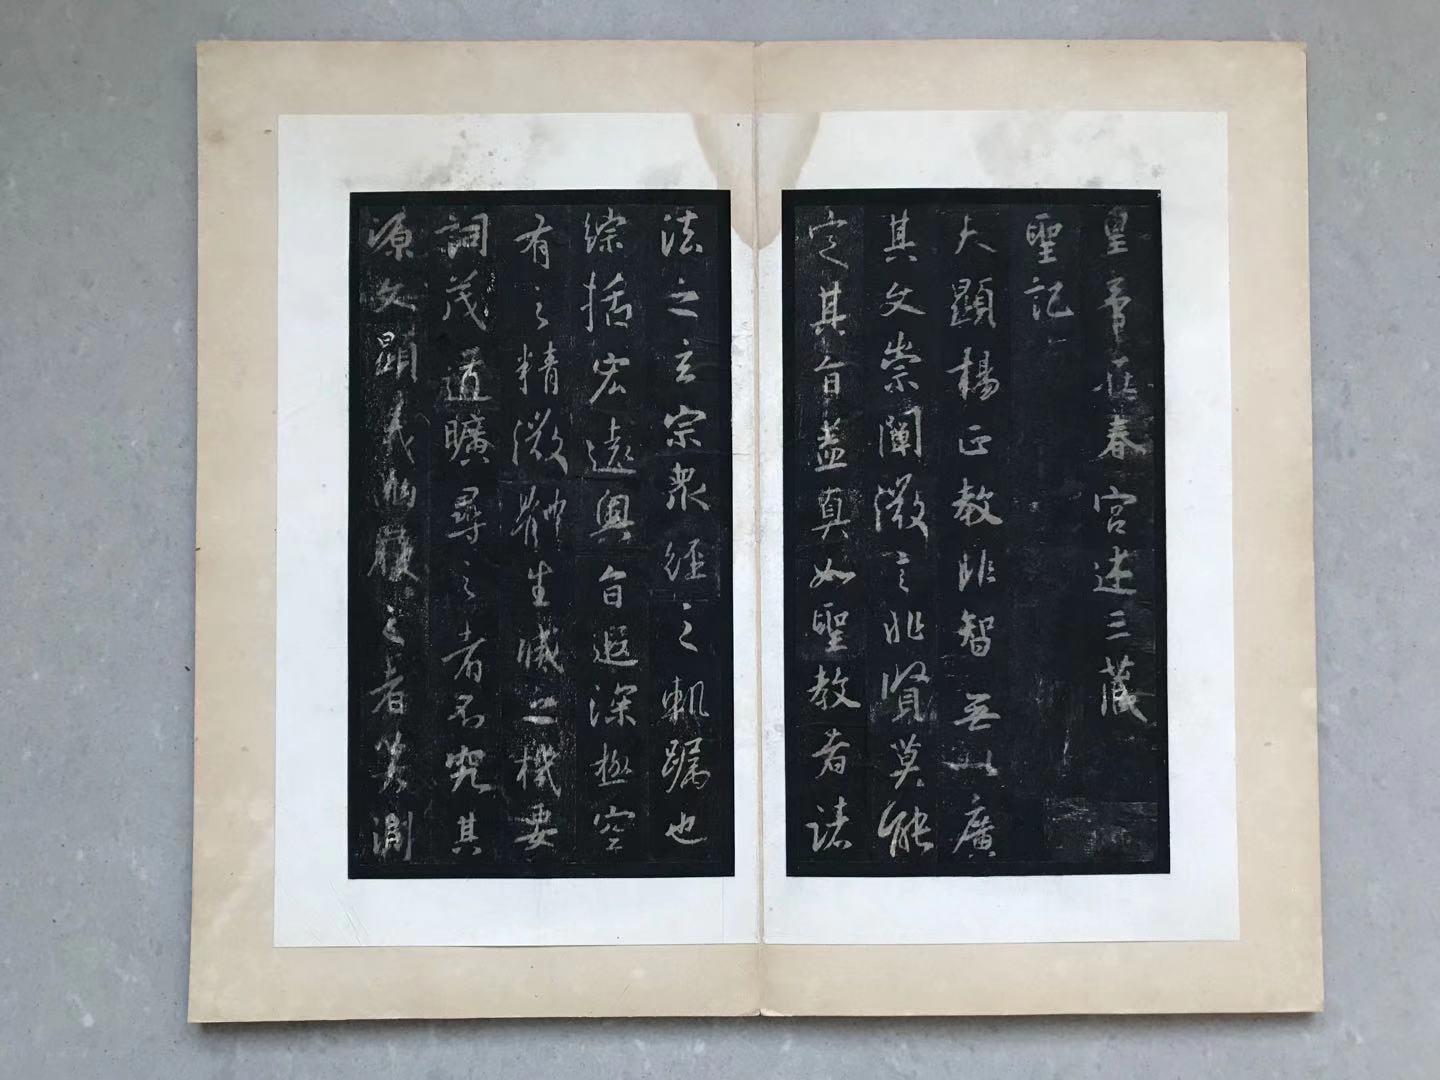 皇帝在春宮述三藏
聖記
夫顯揚正教非智無以廣
其文崇闡微言非賢莫能
定其旨蓋真如聖教者諸
法之玄宗眾經之軌躅也
綜括宏遠奧旨遐深極空
有之精微體生滅之機要
詞茂道曠尋之者不究其
源文顯義幽履之者莫測